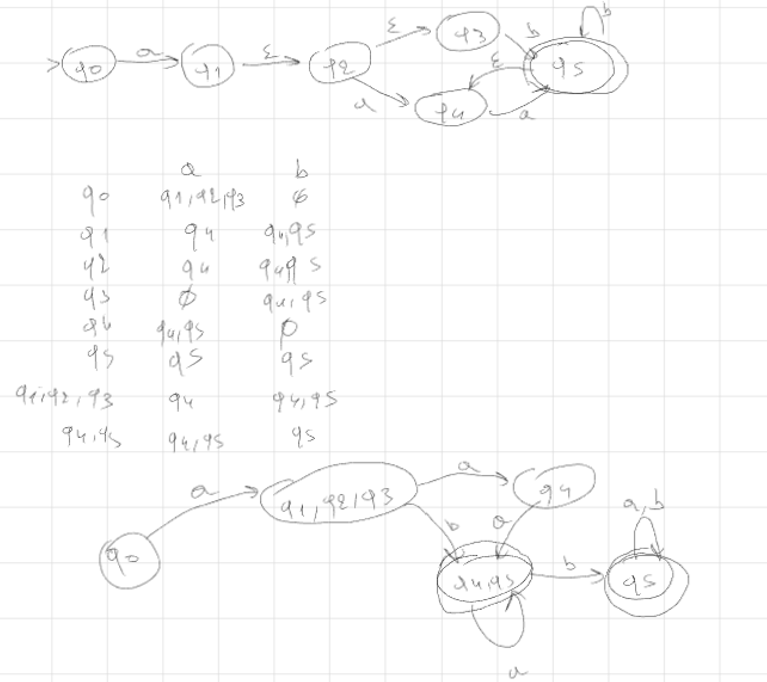 ε q3 b b
> q0 a q1 ε q2 ε q5
a q4 a
a b
q0 q1,q2,q3 ϕ
q1 q4 q4,q5
q2 q4 q4,q5
q3 ϕ q4,q5
q4 q4,q5 ϕ
q5 q5 q5
q1,q2,q3 q4 q4,q5
q4,q5 q4,q5 q5
a q1,q2,q3 a q4
q0 b a a,b
q4,q5 b q5
a